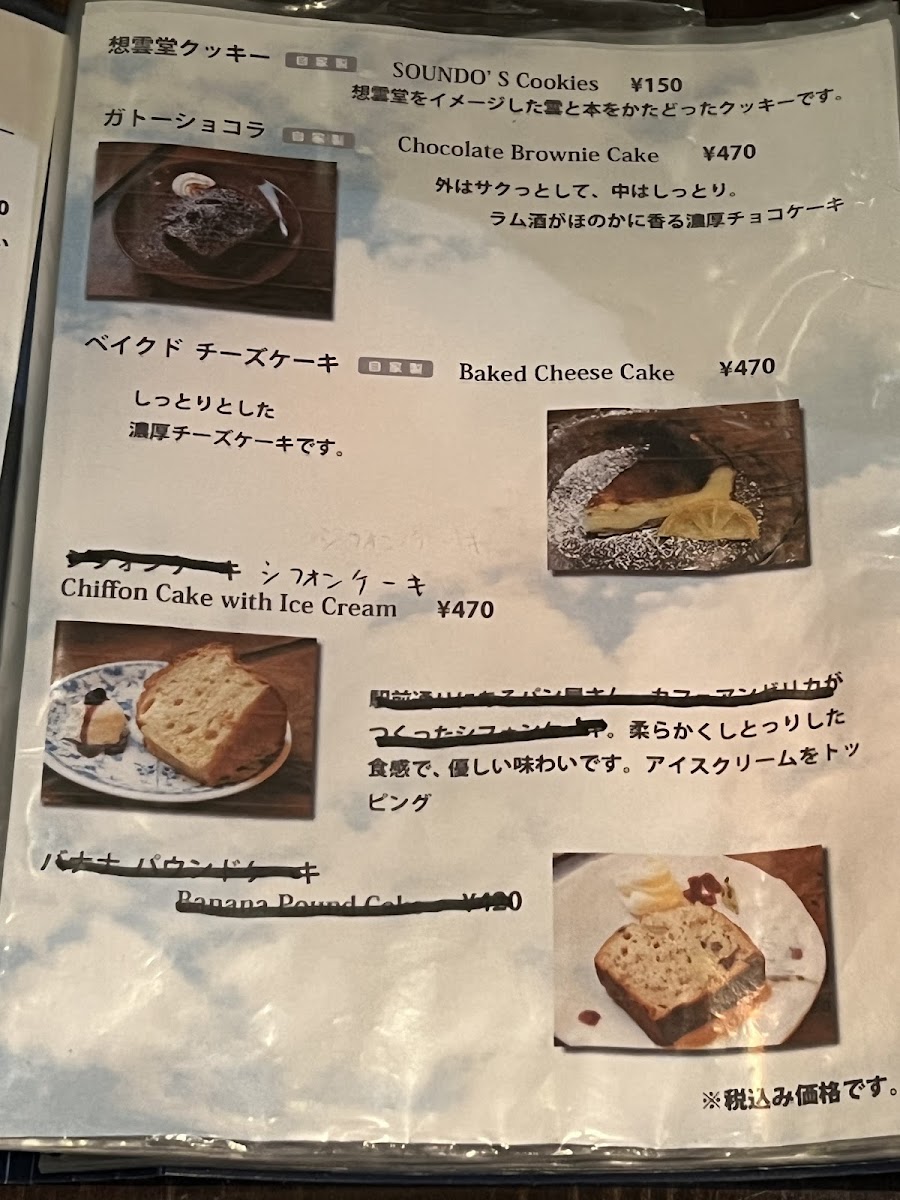 想雲堂クッキー 自家製 SOUNDO'S Cookies ¥150
想雲堂をイメージした雲と本をかたどったクッキーです。
ガトーショコラ 自家製 Chocolate Brownie Cake ¥470
外はサクっとして、中はしっとり。
ラム酒がほのかに香る濃厚チョコケーキ
ベイクド チーズケーキ 自家製 Baked Cheese Cake ¥470
しっとりとした
濃厚チーズケーキです。
シフォンケーキ シフォンケーキ
Chiffon Cake with Ice Cream ¥470
駅前通りにあるパン屋さん カフェアンドリカが
つくったシフォンケーキ。柔らかくしとっりした
食感で、優しい味わいです。アイスクリームをトッ
ピング
バナナ パウンドケーキ
Banana Pound Cake ¥420
※税込み価格です。